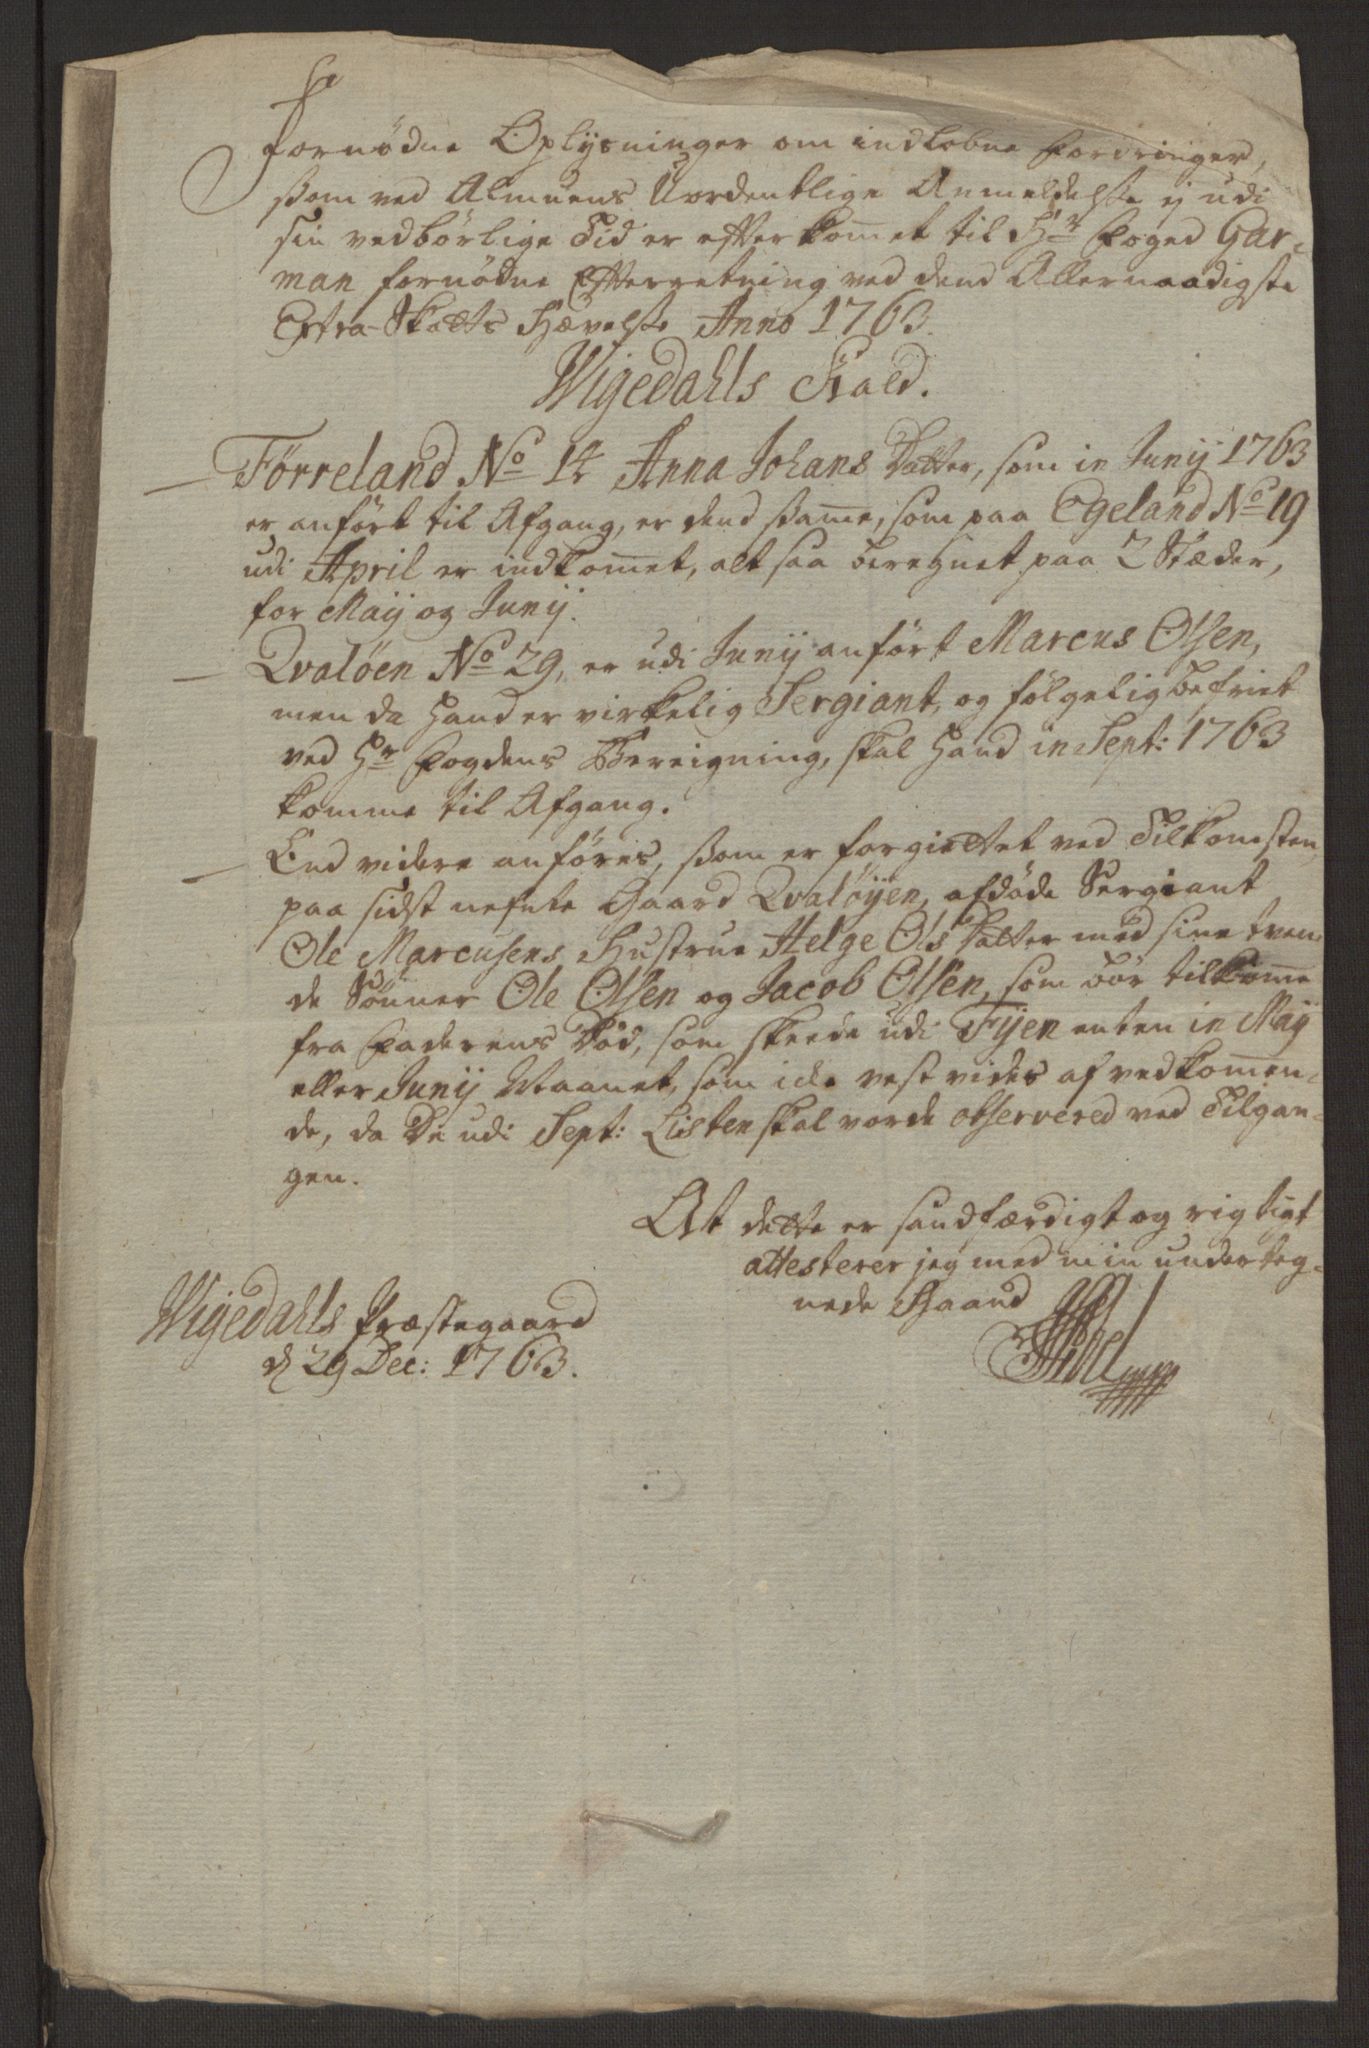 fornödne Oplysninger om indløbne Fordringer,
som ved Almuens Uordentlige Anmeldelse ej udi
sin vedbörlige Tid er efterkom̅et til Hr Foged Gar-
man fornödne Efterretning ved dend Allernaadigste
Extra-Skatts Hævelse Anno 1763.
Wigedahls Kald.
Førreland No 14 Anna Johans Datter, som in Junij 1763
er anfört til Afgang, er dend sam̅e, som paa Egeland No 19
udi April er indkom̅et, alt saa beregnet paa 2 Stæder,
for Maij og Junij.
Qvaløen No 29, er udi Junij anfört Marcus Olsen,
men da Hand er virkelig Sergiant, og fölgelig befriet
ved Hr Fogdens Bereigning, skal Hand in Sept: 1763
komme til Afgang.
End videre anföres, som er forgiettet ved Tilkomsten
paa sidst nefnte Gaard Qvalöyen, afdöde Sergiant
Ole Marcusens Hustrue Helge Ols Datter med sine tven-
de Sönner Ole Olsen og Jacob Olsen, som bör tilkom̅e
fra Faderens Död, som skeede udi Fyen enten in Maij
eller Junij Maanet, som icke vest vides af vedkom̅en-
de, da De udi Sept: Listen skal vorde observered ved Tilgan-
gen.
At dette er sandfærdigt og rigtigt
attesterer jeg med min underteg-
nede Haand
Wigedahls Præstegaard
d 29 Dec: 1763.